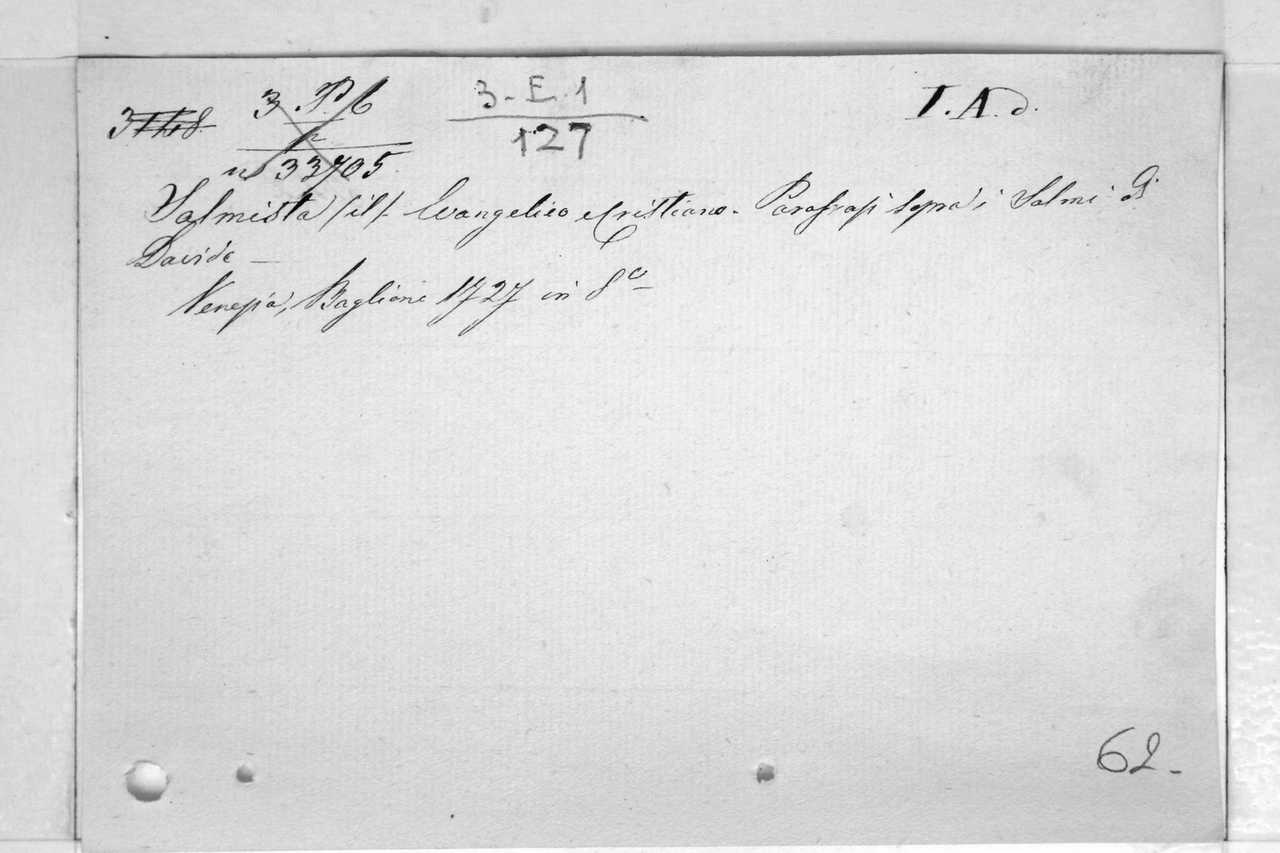 3. P. 6 3-E.1 I. A. d.
127
n° 33705
Salmista (il). Evangelico e Cristiano. Parafrasi sopra i Salmi di
Davide —
Venezia, Baglioni 1727 in 8°—
62.